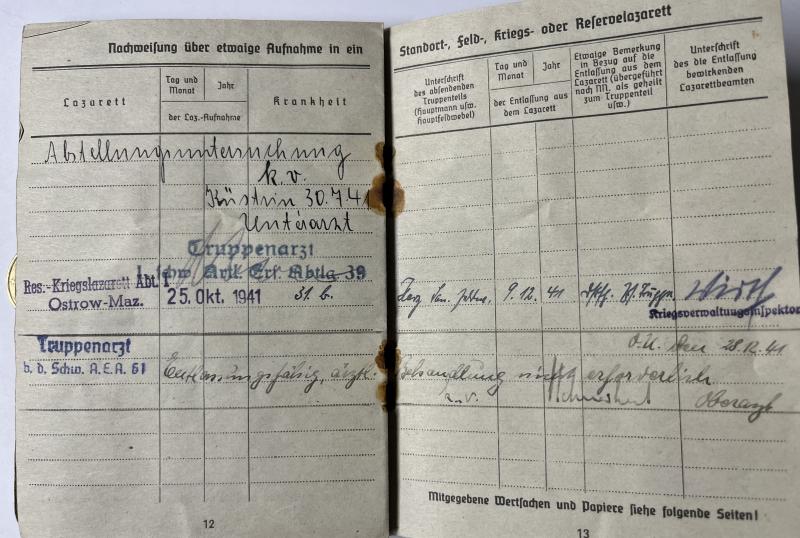 Nachweisung über etwaige Aufnahme in ein
Lazarett
Tag und Monat
Jahr
der Laz.-Aufnahme
Krankheit
Abstellungsuntersuchung
k.v.
Küstrin 30.7.41
Unterarzt
Truppenarzt
schw. Artl. Ers. Abtlg. 39
Res.-Kriegslazarett Abt. I
Ostrow-Maz.
25. Okt. 1941
31. b.
Truppenarzt
b. d. Schw. A.E.A. 61
Entlassungsfähig, ärztl.
12
Standort-, Feld-, Kriegs- oder Reservelazarett
Unterschrift
des absendenden
Truppenteils
(Hauptmann usw.
Hauptfeldwebel)
Tag und
Monat
Jahr
der Entlassung aus
dem Lazarett
Etwaige Bemerkung
in Bezug auf die
Entlassung aus dem
Lazarett (übergeführt
nach NN. als geheilt
zum Truppenteil
usw.)
Unterschrift
des die Entlassung
bewirkenden
Lazarettbeamten
9.12. 41
Wirth
Kriegsverwaltungsinspektor
O.U. den 28.12.41
Behandlung nicht erforderlich.
Oberarzt
Mitgegebene Wertsachen und Papiere siehe folgende Seiten!
13